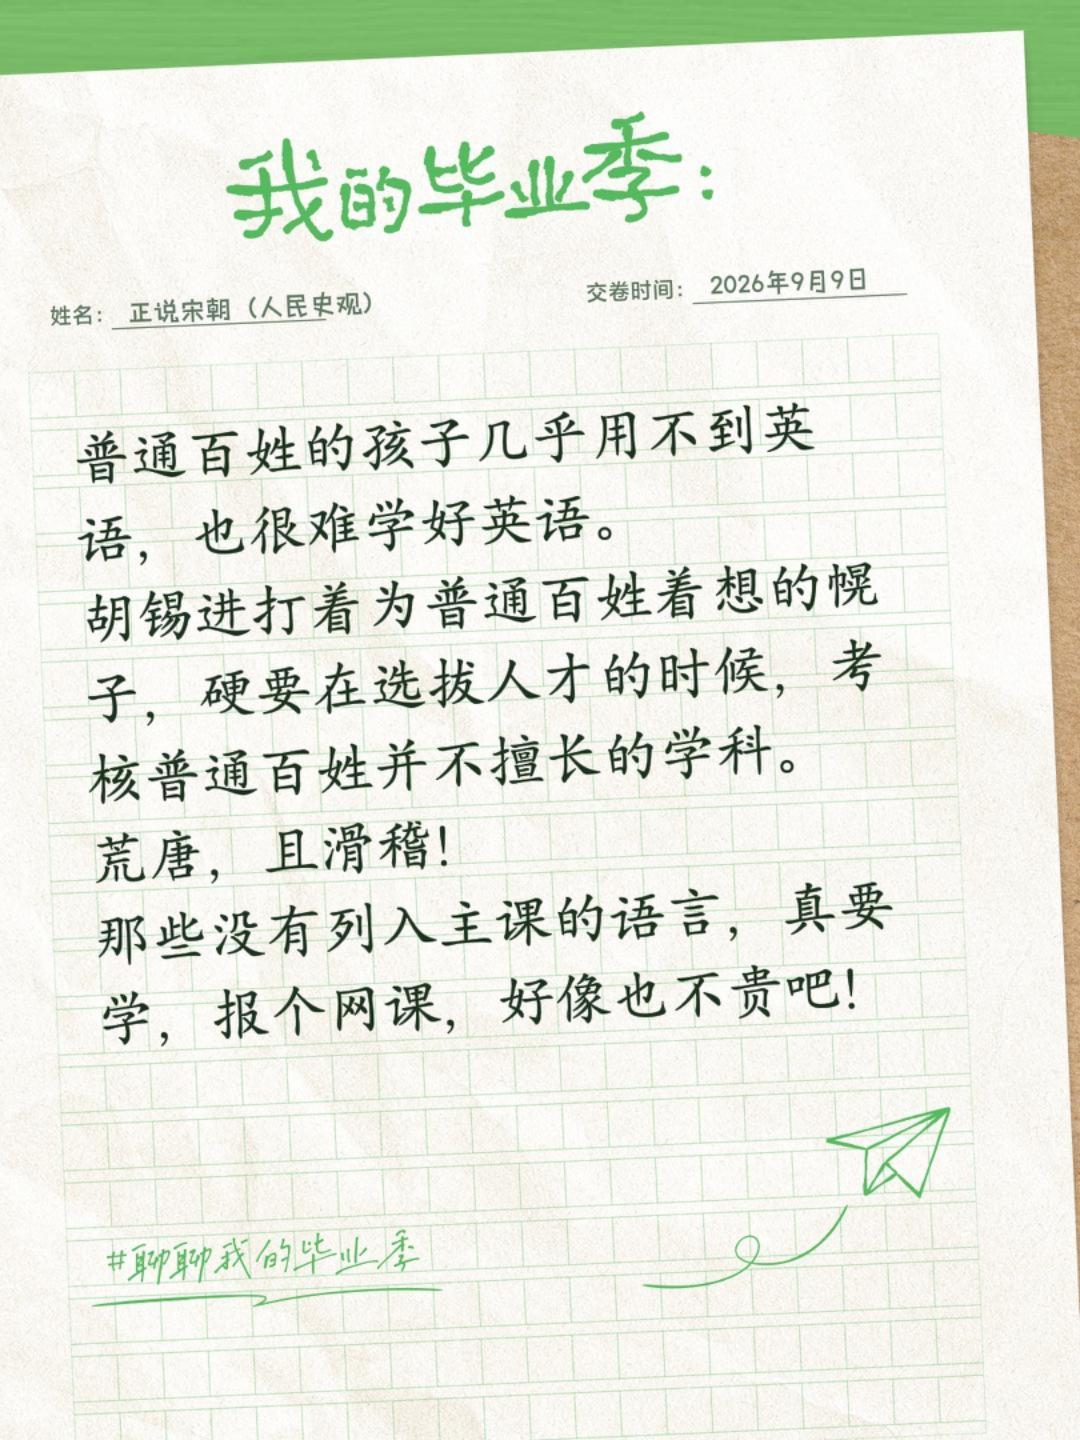 我的毕业季：
姓名：正说宋朝（人民史观） 交卷时间：2026年9月9日
普通百姓的孩子几乎用不到英
语，也很难学好英语。
胡锡进打着为普通百姓着想的幌
子，硬要在选拔人才的时候，考
核普通百姓并不擅长的学科。
荒唐，且滑稽！
那些没有列入主课的语言，真要
学，报个网课，好像也不贵吧！
#聊聊我的毕业季